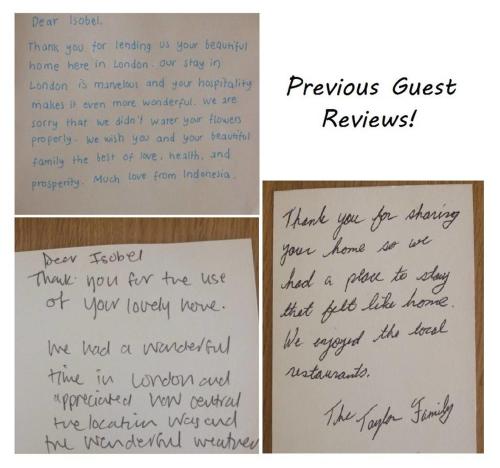 Dear Isobel,
Thank you for lending us your beautiful
home here in London. our stay in
London is marvelous and your hospitality
makes it even more wonderful. We are
sorry that we didn't water your flowers
properly. We wish you and your beautiful
family the best of love, health, and
prosperity. Much love from Indonesia.
Previous Guest
Reviews!
Dear Isobel
Thank you for the use
of your lovely home.
We had a wonderful
time in London and
appreciated how central
the location was and
the wonderful weather
Thank you for sharing
your home so we
had a place to stay
that felt like home.
We enjoyed the local
restaurants.
The Taylor Family